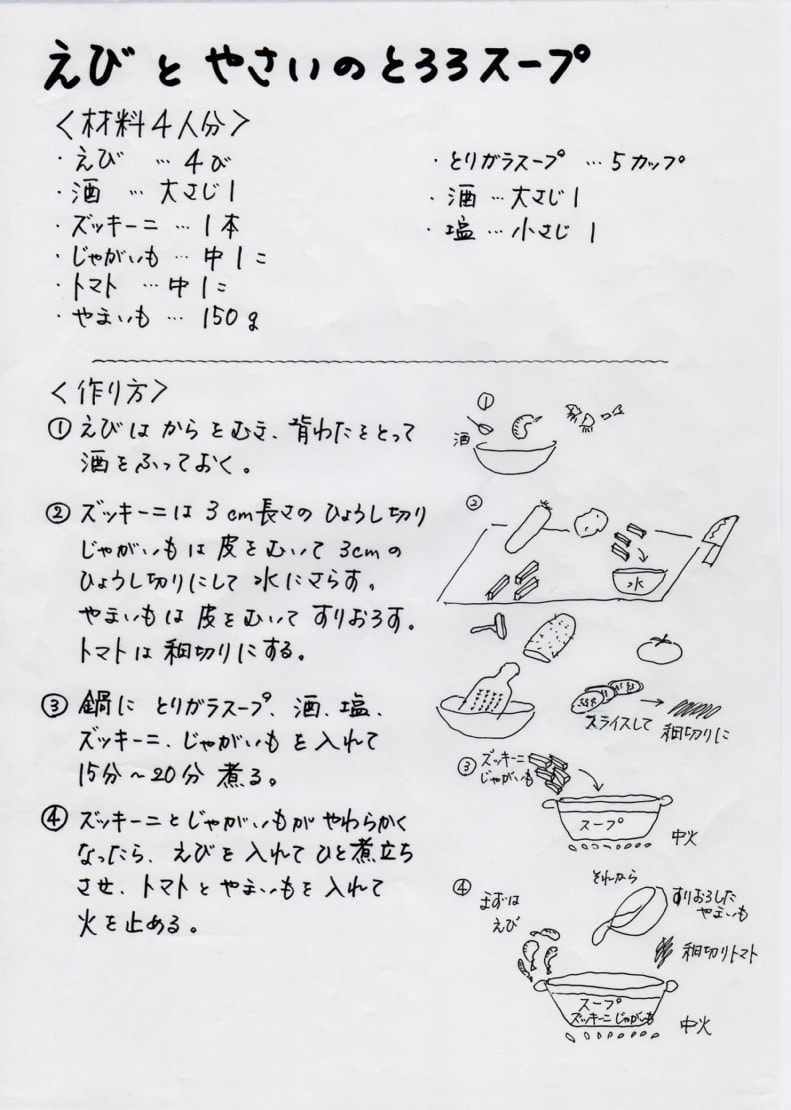 えびとやさいのとろろスープ
〈材料4人分〉
・えび … 4び
・酒 … 大さじ1
・ズッキーニ … 1本
・じゃがいも … 中1こ
・トマト … 中1こ
・やまいも … 150g
・とりガラスープ … 5カップ
・酒 … 大さじ1
・塩 … 小さじ1
〈作り方〉
①えびはからをむき、背わたをとって
酒をふっておく。
②ズッキーニは3cm長さのひょうし切り
じゃがいもは皮をむいて3cmの
ひょうし切りにして水にさらす。
やまいもは皮をむいてすりおろす。
トマトは細切りにする。
③鍋にとりガラスープ、酒、塩、
ズッキーニ、じゃがいもを入れて
15分〜20分煮る。
④ズッキーニとじゃがいもがやわらかく
なったら、えびを入れてひと煮立ち
させ、トマトとやまいもを入れて
火を止める。
①
酒
②
水
スライスして
細切りに
③ズッキーニ
じゃがいも
スープ
中火
④
まずは
えび
それから
すりおろした
やまいも
細切りトマト
スープ
ズッキーニじゃがいも
中火